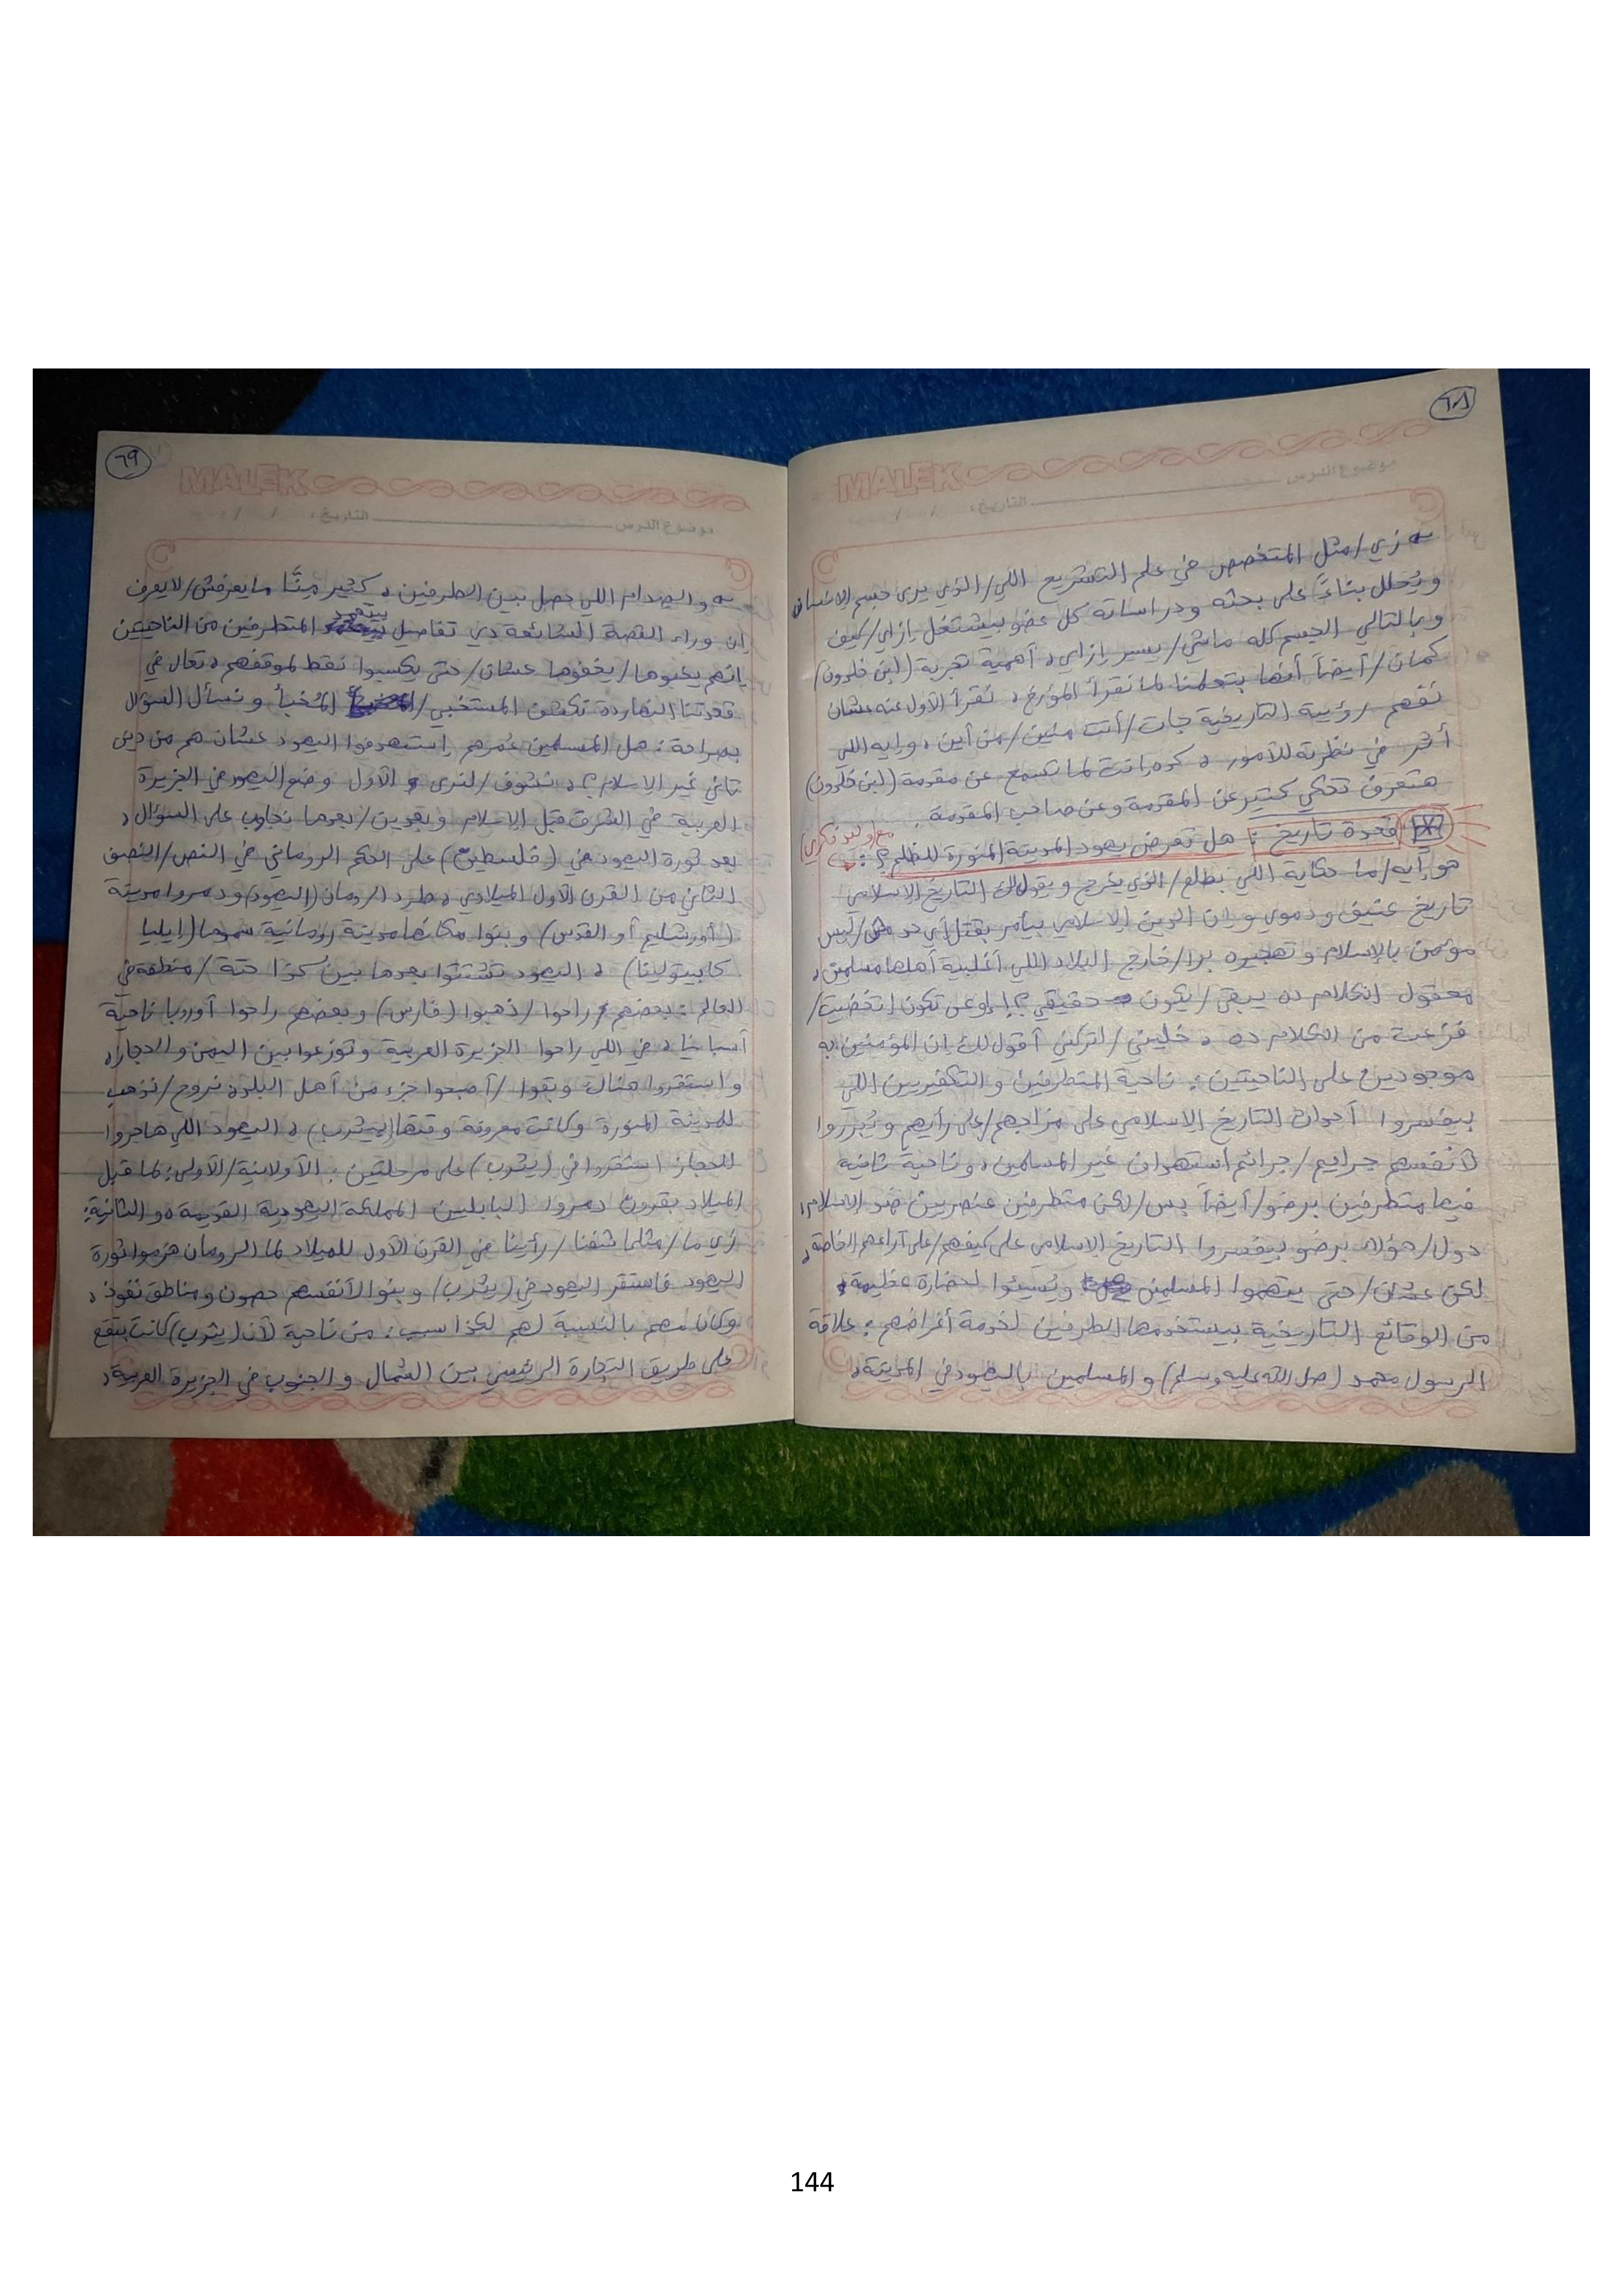 ٦٨
MALEK
موضوع الدرس التاريخ: / /
زي/مثل المتخصص في علم التشريع اللي/الذي يرى جسم الإنسان
ويُحلل بناءً على بحثه ودراساته كل عضو بيشتغل إزاي/كيف
وبالتالي الجسم كله ماشي/يسير إزاي، أهمية تجربة (ابن خلدون)
كمان/أيضاً أنها بتعلمنا لما نقرأ المؤرخ، نقرأ الأول عنه عشان
نفهم رؤيته التاريخية جات/أتت منين/من أين، وإيه اللي
أثر في نظرته للأمور، كده انت لما تسمع عن مقدمة (ابن خلدون)
هتعرف تحكي كتير عن المقدمة وعن صاحب المقدمة.
قعدة تاريخ: هل تعرض يهود المدينة المنورة للظلم؟: (مع وليد فكري)
هو إيه/ما حكاية اللي يطلع/الذي يخرج ويقولك التاريخ الإسلامي
تاريخ عنيف ودموي وإن الدين الإسلامي بيأمر بقتل أي حد مش/ليس
مؤمن بالإسلام وتهجيره برا/خارج البلاد اللي أغلبية أهلها مسلمين،
معقول الكلام ده يبقى/يكون حقيقي؟! اوعى تكون اتخضيت/
فزعت من الكلام ده، خليني/اتركني أقولك إن المؤمنين به
موجودين على الناحيتين: ناحية المتطرفين والتكفيريين اللي
بيفسروا أحداث التاريخ الإسلامي على مزاجهم/على رأيهم ويُبرروا
لأنفسهم جرايم/جرائم استهداف غير المسلمين، وناحية ثانية
فيها متطرفين برضو/أيضاً بس/لكن متطرفين عنصريين ضد الاسلام،
دول/هؤلاء برضو بيفسروا التاريخ الإسلامي على كيفهم/على آراءهم الخاصة،
لكن عشان/حتى يتهموا المسلمين ويُسيئوا لحضارة عظيمة،
من الوقائع التاريخية بيستخدمها الطرفين لخدمة أغراضهم: علاقة
الرسول محمد (صل الله عليه وسلم) والمسلمين باليهود في المدينة،
٦٩
MALEK
موضوع الدرس التاريخ: / /
والصدام اللي حصل بين الطرفين، كتير منّا مايعرفش/لايعرف
إن وراء القصة الشائعة دي تفاصيل بيتعمد المتطرفين من الناحيتين
إنهم يخبوها/يخفوها عشان/حتى يكسبوا نقط لموقفهم، تعال في
قعدتنا النهاردة نكشف المستخبي/المُخبأ ونسأل السؤال
بصراحة: هل المسلمين عُمرهم استهدفوا اليهود عشان هم من دين
تاني غير الإسلام؟، نشوف/لنرى الأول وضع اليهود في الجزيرة
العربية في الشرق قبل الإسلام وبعدين/بعدها نجاوب على السؤال،
بعد ثورة اليهود في (فلسطين) على الحكم الروماني في النص/النصف
الثاني من القرن الأول الميلادي، طرد الرومان (اليهود) ودمروا مدينة
(أورشليم أو القدس) وبنوا مكانها مدينة رومانية سموها (إيليا
كابيتولينا)، اليهود تشتتوا بعدها بين كذا حتة/منطقة في
العالم: بعضهم راحوا/ذهبوا (فارس) وبعضهم راحوا أوروبا ناحية
أسبانيا، في اللي راحوا الجزيرة العربية وتوزعوا بين اليمن والحجاز،
واستقروا هناك وبقوا/أصبحوا جزء من أهل البلد، نروح/نذهب
للمدينة المنورة وكانت معروفة وقتها (بيثرب)، اليهود اللي هاجروا
للحجاز استقروا في (يثرب) على مرحلتين: الأولانية/الأولى: لما قبل
الميلاد بقرون دمروا البابليين المملكة اليهودية القديمة، والثانية:
زي ما/مثلما شفنا/رأينا في القرن الأول للميلاد لما الرومان هزموا ثورة
اليهود فاستقر اليهود في (يثرب) وبنوا لأنفسهم حصون ومناطق نفوذ،
وكان مهم بالنسبة لهم لكذا سبب: من ناحية لأن (يثرب) كانت بتقع
على طريق التجارة الرئيسي بين الشمال والجنوب في الجزيرة العربية،
144